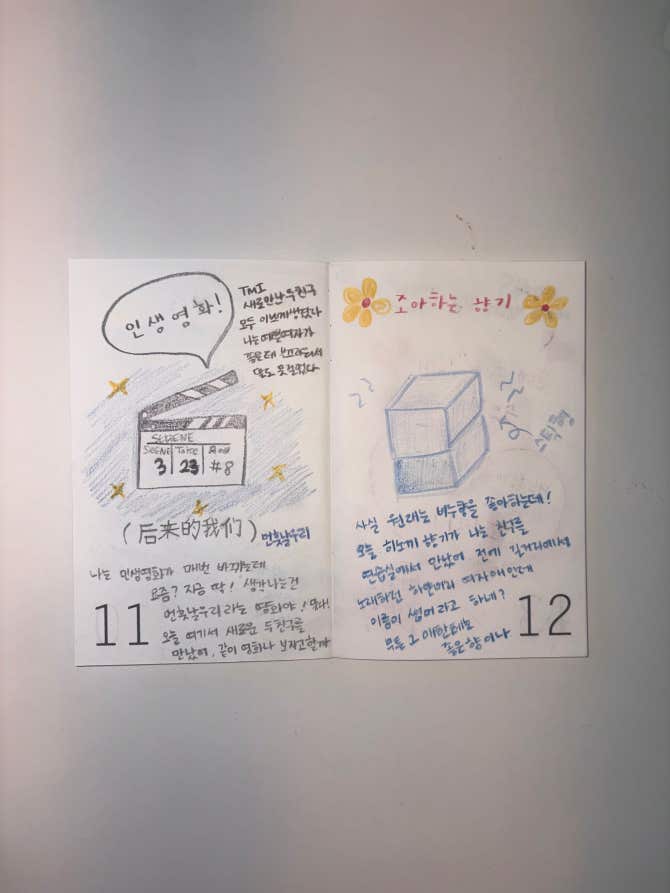 인생영화!
TMI
새로만난 두친구
모두 이쁘게생겼다
나는예쁜여자가
좋은데 부끄러워서
말도 못걸었다
SCENE TAKE
3 23 #8
(后来的我们) 먼훗날우리
나는 인생영화가 매번 바뀌는데
요즘? 지금 딱! 생각나는건
먼훗날우리 라는 영화야!
오늘 여기서 새로운 두친구를
만났어, 같이 영화나 보자고할까
11
조아하는 향기
사실 원래는 비누향을 좋아하는데!
오늘 히노끼 향기가 나는 친구를
연습실에서 만났어 전에 길거리에서
노래하던 하얀머리 여자애인데
이름이 썸머라고 하네?
무튼 그 애한테는
좋은향이나
12